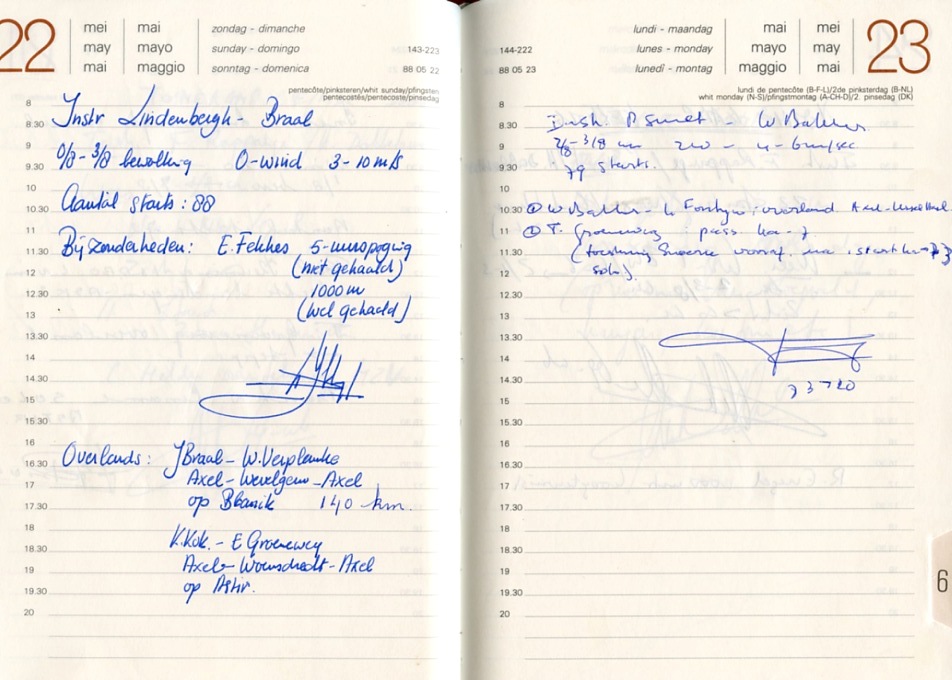 22
mei mai zondag - dimanche
may mayo sunday - domingo 143-223
mai maggio sonntag - domenica 88 05 22
pentecôte/pinksteren/whit sunday/pfingsten
pentecostés/pentecoste/pinsedag
8
8.30 Instr Lindenbergh - Braal
9
9.30 0/8 - 3/8 bewolking O-wind 3-10 m/s
10
10.30 Aantal starts : 88
11
11.30 Bijzonderheden: E. Fekkes 5-uurspoging
12 (niet gehaald)
12.30 1000 m
13 (wel gehaald)
13.30
14
14.30
15
15.30
16
16.30 Overlands: J Braal - W. Verplanke
17 Axel - Wevelgem - Axel
17.30 op Blanik 140 km.
18
18.30 K. Kok. - E Groeneweg
19 Axel - Woensdrecht - Axel
19.30 op Astir.
20
lundi - maandag mai mei 23
144-222 lunes - monday mayo may
88 05 23 lunedì - montag maggio mai
lundi de pentecôte (B-F-L)/2de pinksterdag (B-NL)
whit monday (N-S)/pfingstmontag (A-CH-D)/2. pinsedag (DK)
8
8.30 Instr. P Smet - W Bakker
9 2/8 - 3/8 4 - 6 m/sec
9.30 79 starts.
10
10.30 ① W Bakker - overland Axel -
11 ② T. Groeneweg : pass.
11.30 start
12 solo).
12.30
13
13.30
14
14.30
15
15.30
16
16.30
17
17.30
18
18.30
19
19.30
20
6